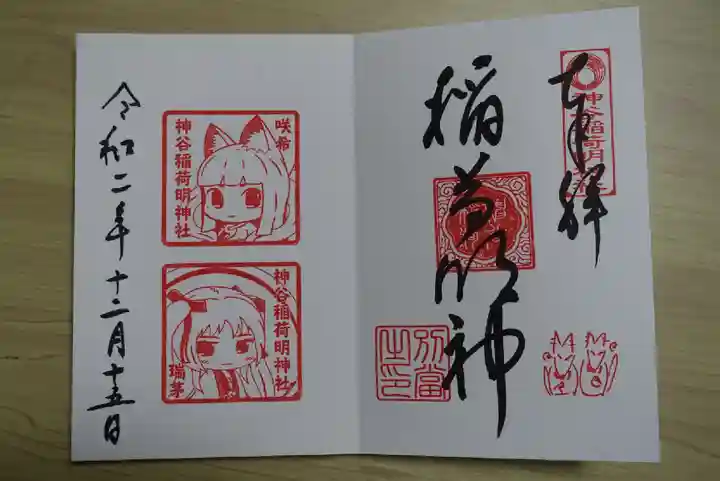 奉拝
神谷稲荷明神社
稲荷明神
別當
之印
咲希
神谷稲荷明神社
神谷稲荷明神社
瑞茅
令和二年十二月十五日